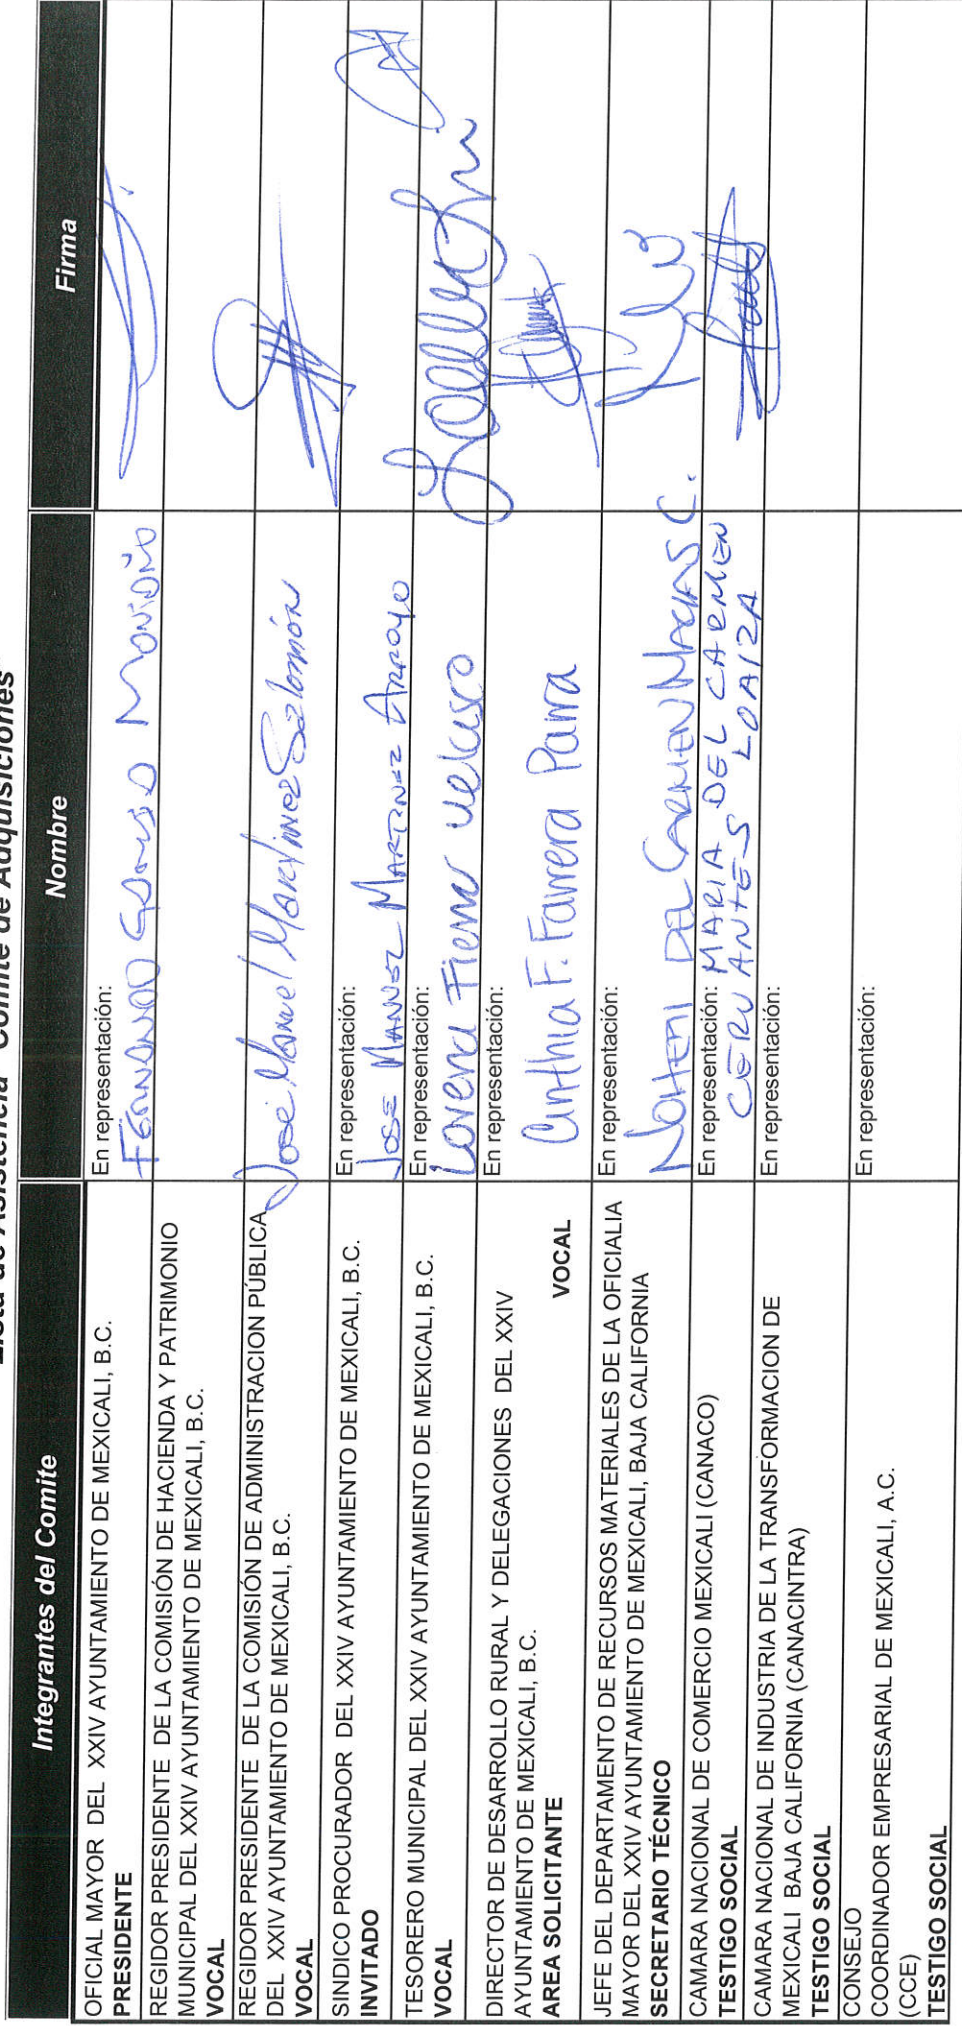 Lista de Asistencia Comité de Adquisiciones
Integrantes del Comite
Nombre
Firma
OFICIAL MAYOR DEL XXIV AYUNTAMIENTO DE MEXICALI, B.C.
PRESIDENTE
En representación:
FERNANDO
REGIDOR PRESIDENTE DE LA COMISIÓN DE HACIENDA Y PATRIMONIO
MUNICIPAL DEL XXIV AYUNTAMIENTO DE MEXICALI, B.C.
VOCAL
REGIDOR PRESIDENTE DE LA COMISIÓN DE ADMINISTRACION PÚBLICA
DEL XXIV AYUNTAMIENTO DE MEXICALI, B.C.
VOCAL
José Manuel Martinez Salomón
SINDICO PROCURADOR DEL XXIV AYUNTAMIENTO DE MEXICALI, B.C.
INVITADO
En representación:
JOSE MANUEL MARTINEZ ARROYO
TESORERO MUNICIPAL DEL XXIV AYUNTAMIENTO DE MEXICALI, B.C.
VOCAL
En representación:
Lorena Fierro Velasco
DIRECTOR DE DESARROLLO RURAL Y DELEGACIONES DEL XXIV
AYUNTAMIENTO DE MEXICALI, B.C.
AREA SOLICITANTE VOCAL
En representación:
Cinthia F. Farrera Parra
JEFE DEL DEPARTAMENTO DE RECURSOS MATERIALES DE LA OFICIALIA
MAYOR DEL XXIV AYUNTAMIENTO DE MEXICALI, BAJA CALIFORNIA
SECRETARIO TÉCNICO
En representación:
NOHEMI DEL CARMEN MACIAS C.
CAMARA NACIONAL DE COMERCIO MEXICALI (CANACO)
TESTIGO SOCIAL
En representación: MARIA DEL CARMEN
CERVANTES LOAIZA
CAMARA NACIONAL DE INDUSTRIA DE LA TRANSFORMACION DE
MEXICALI BAJA CALIFORNIA (CANACINTRA)
TESTIGO SOCIAL
En representación:
CONSEJO
COORDINADOR EMPRESARIAL DE MEXICALI, A.C.
(CCE)
TESTIGO SOCIAL
En representación: